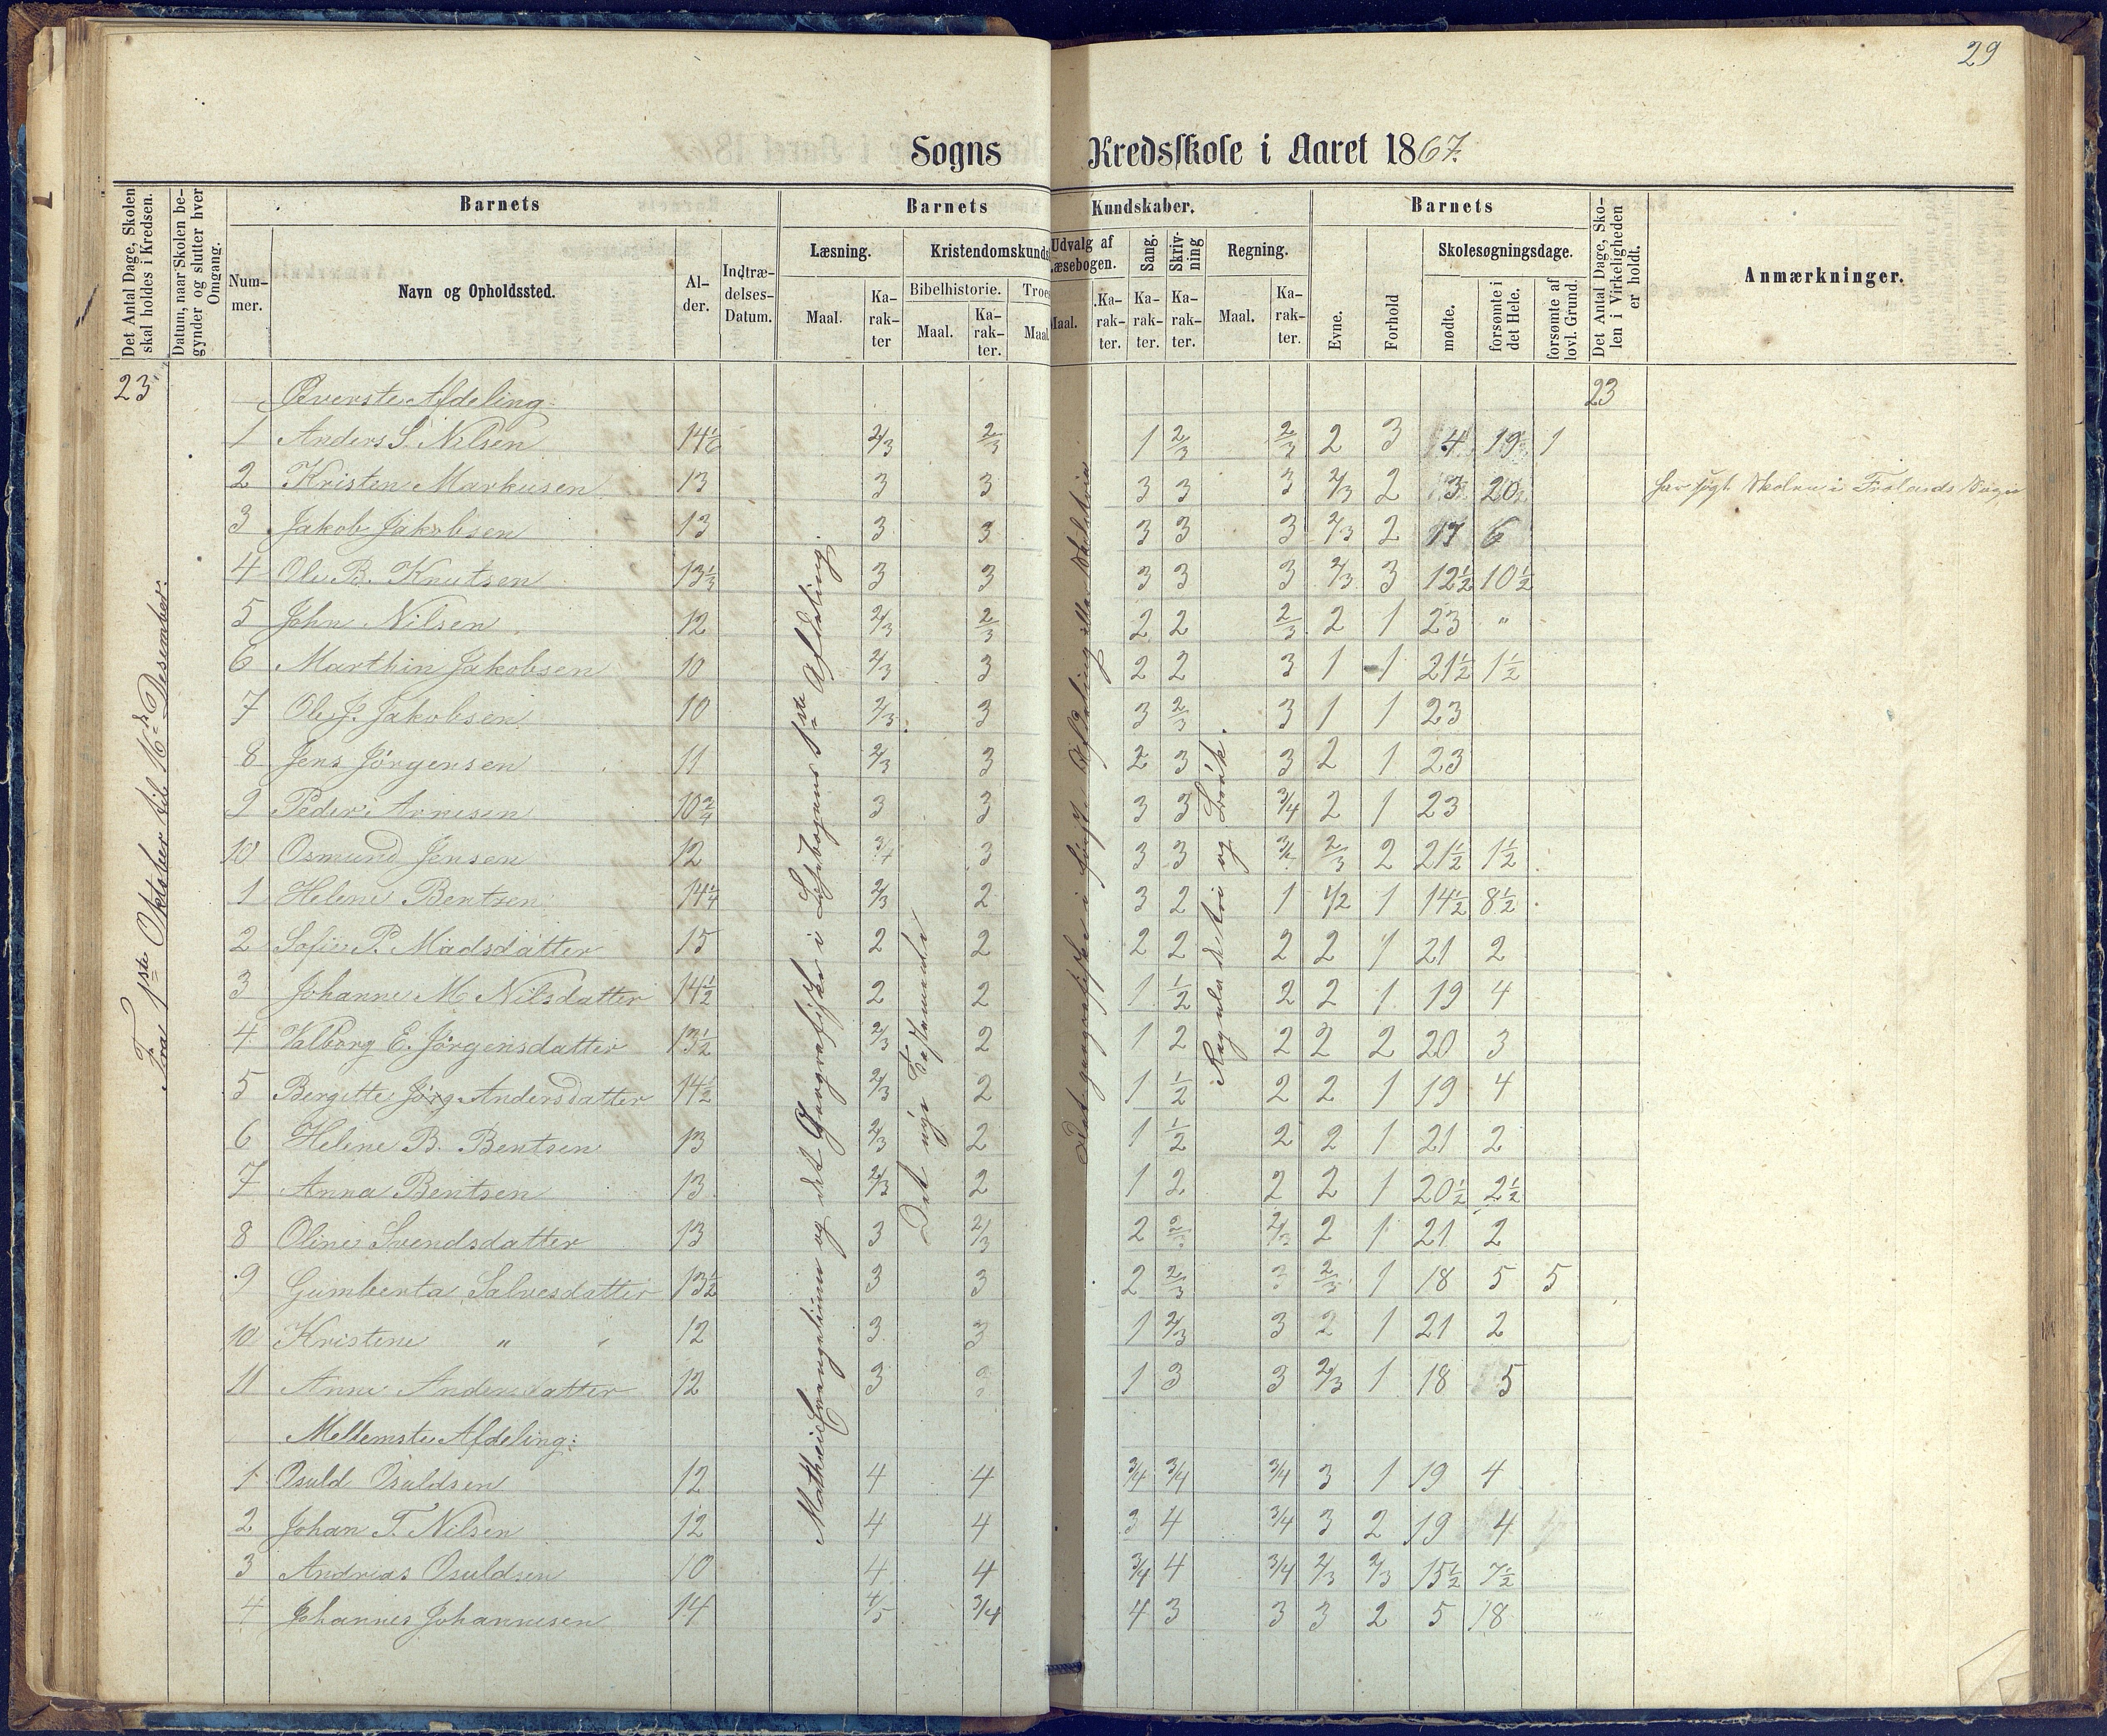 29
Sogns Kredsskole i Aaret 1867.
Det Antal Dage, Skolen skal holdes i Kredsen.
Datum, naar Skolen begynder og slutter hver Omgang.
Barnets
Barnets Kundskaber.
Barnets
Det Antal Dage, Skolen i Virkeligheden er holdt.
Anmærkninger.
Nummer.
Navn og Opholdssted.
Alder.
Indtrædelses-Datum.
Læsning.
Kristendomskunds
Udvalg af Læsebogen.
Sang.
Skrivning
Regning.
Evne.
Forhold
Skolesøgningsdage.
Maal.
Karakter
Bibelhistorie.
Troes
Maal.
Karakter.
Maal
Maal.
Karakter.
Karakter.
Karakter.
Maal.
Karakter.
mødte.
forsømte i det Hele.
forsømte af lovl. Grund.
Fra 1ste Oktober til 16de Desember.
Matthæi Evangelium og det Geografiske i Læsebogens 1ste Afdeling.
Det nye Testamente
Det geografiske i første Afdeling
Regula de tri og Brøk.
23 Øverste Afdeling. 23
1 Anders S. Nilsen 14 1/6 2/3 2/3 1 2/3 2/3 2 3 4 19 1
2 Kristen Markusen 13 3 3 3 3 3 2/3 2 3 20 har søgt Skolen i Frolands Sogn
3 Jakob Jakobsen 13 3 3 3 3 3 2/3 2 17 6
4 Ole B. Knutsen 13 1/3 3 3 3 3 3 2/3 3 12 1/2 10 1/2
5 John Nilsen 12 2/3 2/3 2 2 2/3 2 1 23 "
6 Marthin Jakobsen 10 2/3 3 2 2 3 1 1 21 1/2 1 1/2
7 Ole J. Jakobsen 10 2/3 3 3 2/3 3 1 1 23
8 Jens Jørgensen 11 2/3 3 2 3 3 2 1 23
9 Peder Arnesen 10 3/4 3 3 3 3 3/4 2 1 23
10 Osmund Jensen 12 3/4 3 3 3 3/4 2/3 2 21 1/2 1 1/2
1 Helene Bentsen 14 1/4 2/3 2 3 2 1 1/2 1 14 1/2 8 1/2
2 Sofie P. Madsdatter 15 2 2 2 2 2 2 1 21 2
3 Johanne M. Nilsdatter 14 1/2 2 2 1 1/2 2 2 1 19 4
4 Valborg E. Jørgensdatter 13 1/2 2/3 2 1 2 2 2 2 20 3
5 Bergitte Jörg Andersdatter 14 1/2 2/3 2 1 1/2 2 2 1 19 4
6 Helene B. Bentsen 13 2/3 2 1 1/2 2 2 1 21 2
7 Anna Bentsen 13 2/3 2 1 2 2 2 1 20 1/2 2 1/2
8 Oline Svendsdatter 13 3 2/3 2 2/3 2/3 2 1 21 2
9 Gumberta Salvesdatter 13 1/2 3 3 2 2/3 3 2/3 1 18 5 5
10 Kristine " 12 3 3 1 2/3 3 2 1 21 2
11 Anne Andersdatter 12 3 3 1 3 3 2/3 1 18 5
Mellemste Afdeling:
1 Osuld Osuldsen 12 4 4 3/4 3/4 3/4 3 1 19 4
2 Johan T. Nilsen 12 4 4 3 4 3/4 3 2 19 4
3 Andreas Osuldsen 10 4 4 3/4 4 3/4 2/3 2/3 15 1/2 7 1/2
4 Johannes Johannesen 14 4/5 3/4 4 3 3 3 2 5 18